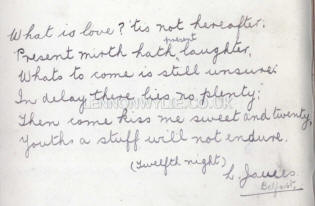 What is love? 'tis not hereafter,
Present mirth hath present laughter,
Whats to come is still unsure:
In delay there lies no plenty;
LENNONWYLIE.CO.UK
Then come kiss me sweet and twenty,
Youths a stuff will not endure.
(Twelfth night)
L.
Belfast.